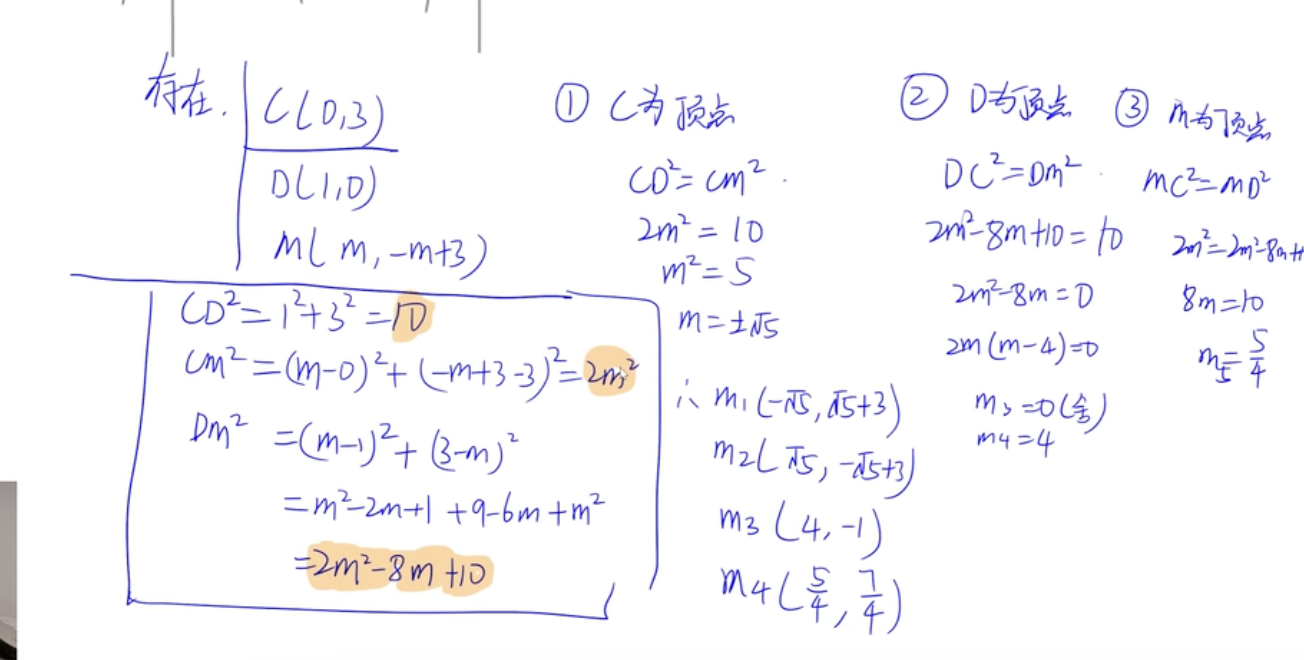 存在.
C(0,3)
D(1,0)
M(m,-m+3)
CD²=1²+3²=10
Cm²=(m-0)²+(-m+3-3)²=2m²
Dm²=(m-1)²+(3-m)²
=m²-2m+1+9-6m+m²
=2m²-8m+10
① C为顶点
CD²=Cm².
2m²=10
m²=5
m=±√5
∴ m₁(-√5,√5+3)
m₂(√5,-√5+3)
m₃(4,-1)
m₄(5/4,7/4)
② D为顶点
DC²=Dm².
2m²-8m+10=10
2m²-8m=0
2m(m-4)=0
m₃=0(舍)
m₄=4
③ m为顶点
mC²=mD²
2m²=2m²-8m+
8m=10
m₅=5/4